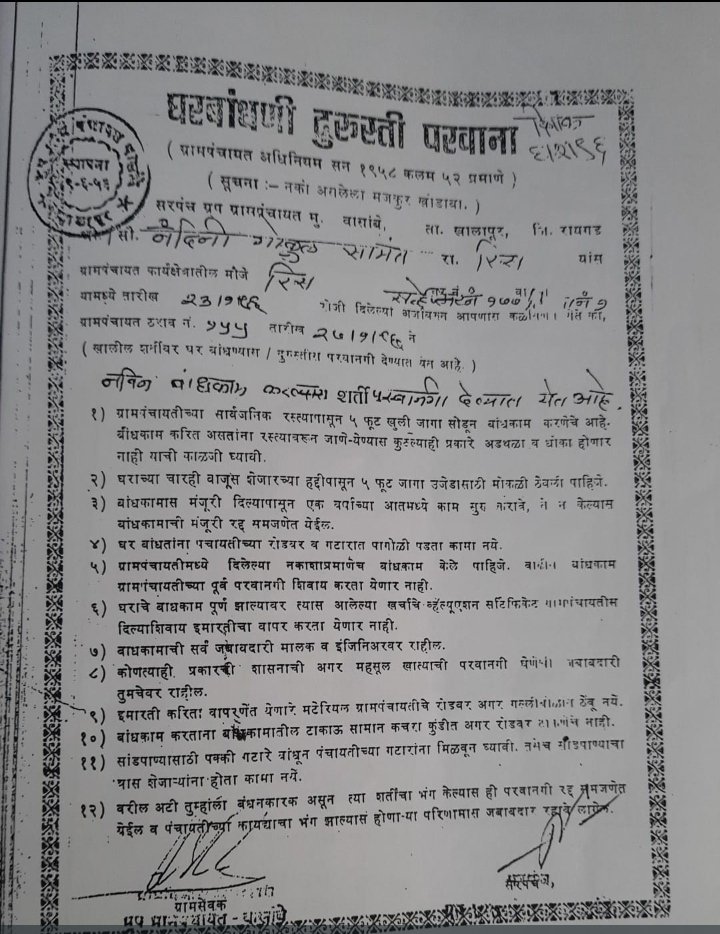 घरबांधणी दुरुस्ती परवाना
( ग्रामपंचायत अधिनियम सन १९५८ कलम ५२ प्रमाणे )
( सूचना :- नको असलेला मजकुर खोडावा. )
स्थापना
सरपंच ग्रुप ग्रामपंचायत मु. वासांबे, ता. खालापूर, जि. रायगड
सौ. नंदिनी गोकुळ सामंत रा. रिस यांस
ग्रामपंचायत कार्यक्षेत्रातील मौजे रिस
यामध्ये तारीख रोजी दिलेल्या आपणास
ग्रामपंचायत ठराव नं. १५५ तारीख ने
( खालील शर्तीवर घर बांधण्यास / दुरुस्तीस परवानगी देण्यात येत आहे. )
नविन बांधकाम करण्यास शर्ती परवानगी देण्यात येत आहे.
१) ग्रामपंचायतीच्या सार्वजनिक रस्त्यापासून ५ फूट खुली जागा सोडून बांधकाम करणेचे आहे.
बांधकाम करित असतांना रस्त्यावरून जाणे-येण्यास कुठल्याही प्रकारे अडथळा व धोका होणार
नाही याची काळजी घ्यावी.
२) घराच्या चारही बाजूस शेजारच्या हद्दीपासून ५ फूट जागा उजेडासाठी मोकळी ठेवली पाहिजे.
३) बांधकामास मंजूरी दिल्यापासून एक वर्षाच्या आतमध्ये काम सुरु करावे, ते न केल्यास
बांधकामाची मंजूरी रद्द समजणेत येईल.
४) घर बांधतांना पंचायतीच्या रोडवर व गटारात पागोळी पडता कामा नये.
५) ग्रामपंचायतीमध्ये दिलेल्या नकाशाप्रमाणेच बांधकाम केले पाहिजे. बांधकाम
ग्रामपंचायतीच्या पूर्व परवानगी शिवाय करता येणार नाही.
६) घराचे बांधकाम पूर्ण झाल्यावर त्यास आलेल्या खर्चाचे व्हॅल्यूएशन सर्टिफिकेट ग्रामपंचायतीस
दिल्याशिवाय इमारतीचा वापर करता येणार नाही.
७) बांधकामाची सर्व जबाबदारी मालक व इंजिनिअरवर राहील.
८) कोणत्याही प्रकारची शासनाची अगर महसूल खात्याची परवानगी घेणेची जबाबदारी
तुमचेवर राहील.
९) इमारती करिता वापरणेंत येणारे मटेरियल ग्रामपंचायतीचे रोडवर अगर ठेवू नये.
१०) बांधकाम करताना बांधकामातील टाकाऊ सामान कचरा कुंडीत अगर रोडवर टाकणेचे नाही.
११) सांडपाण्यासाठी पक्की गटारे बांधून पंचायतीच्या गटारांना मिळवून घ्यावी. तसेच सांडपाण्याचा
त्रास शेजाऱ्यांना होता कामा नये.
१२) वरील अटी तुम्हांला बंधनकारक असून त्या शर्तीचा भंग केल्यास ही परवानगी रद्द समजणेत
येईल व पंचायतीच्या कायद्याचा भंग झाल्यास होणाऱ्या परिणामास जबाबदार रहावे लागेल.
ग्रामसेवक सरपंच,
ग्रुप ग्रामपंचायत - वासांबे